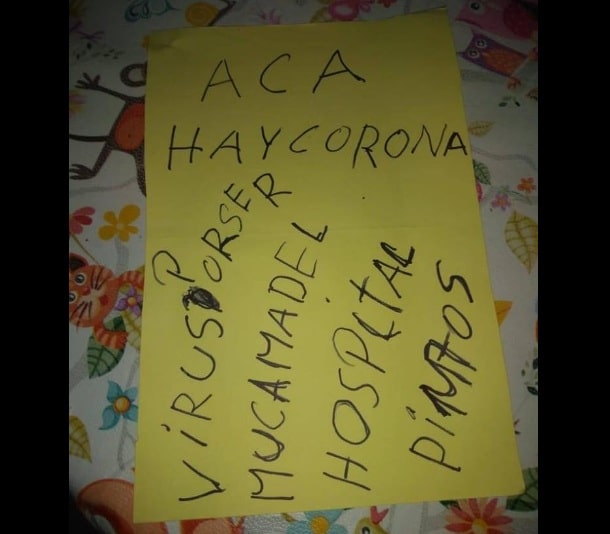 ACA
HAYCORONA
VIRUS PORSER
MUCAMADEL
HOSPITAL
PINTOS